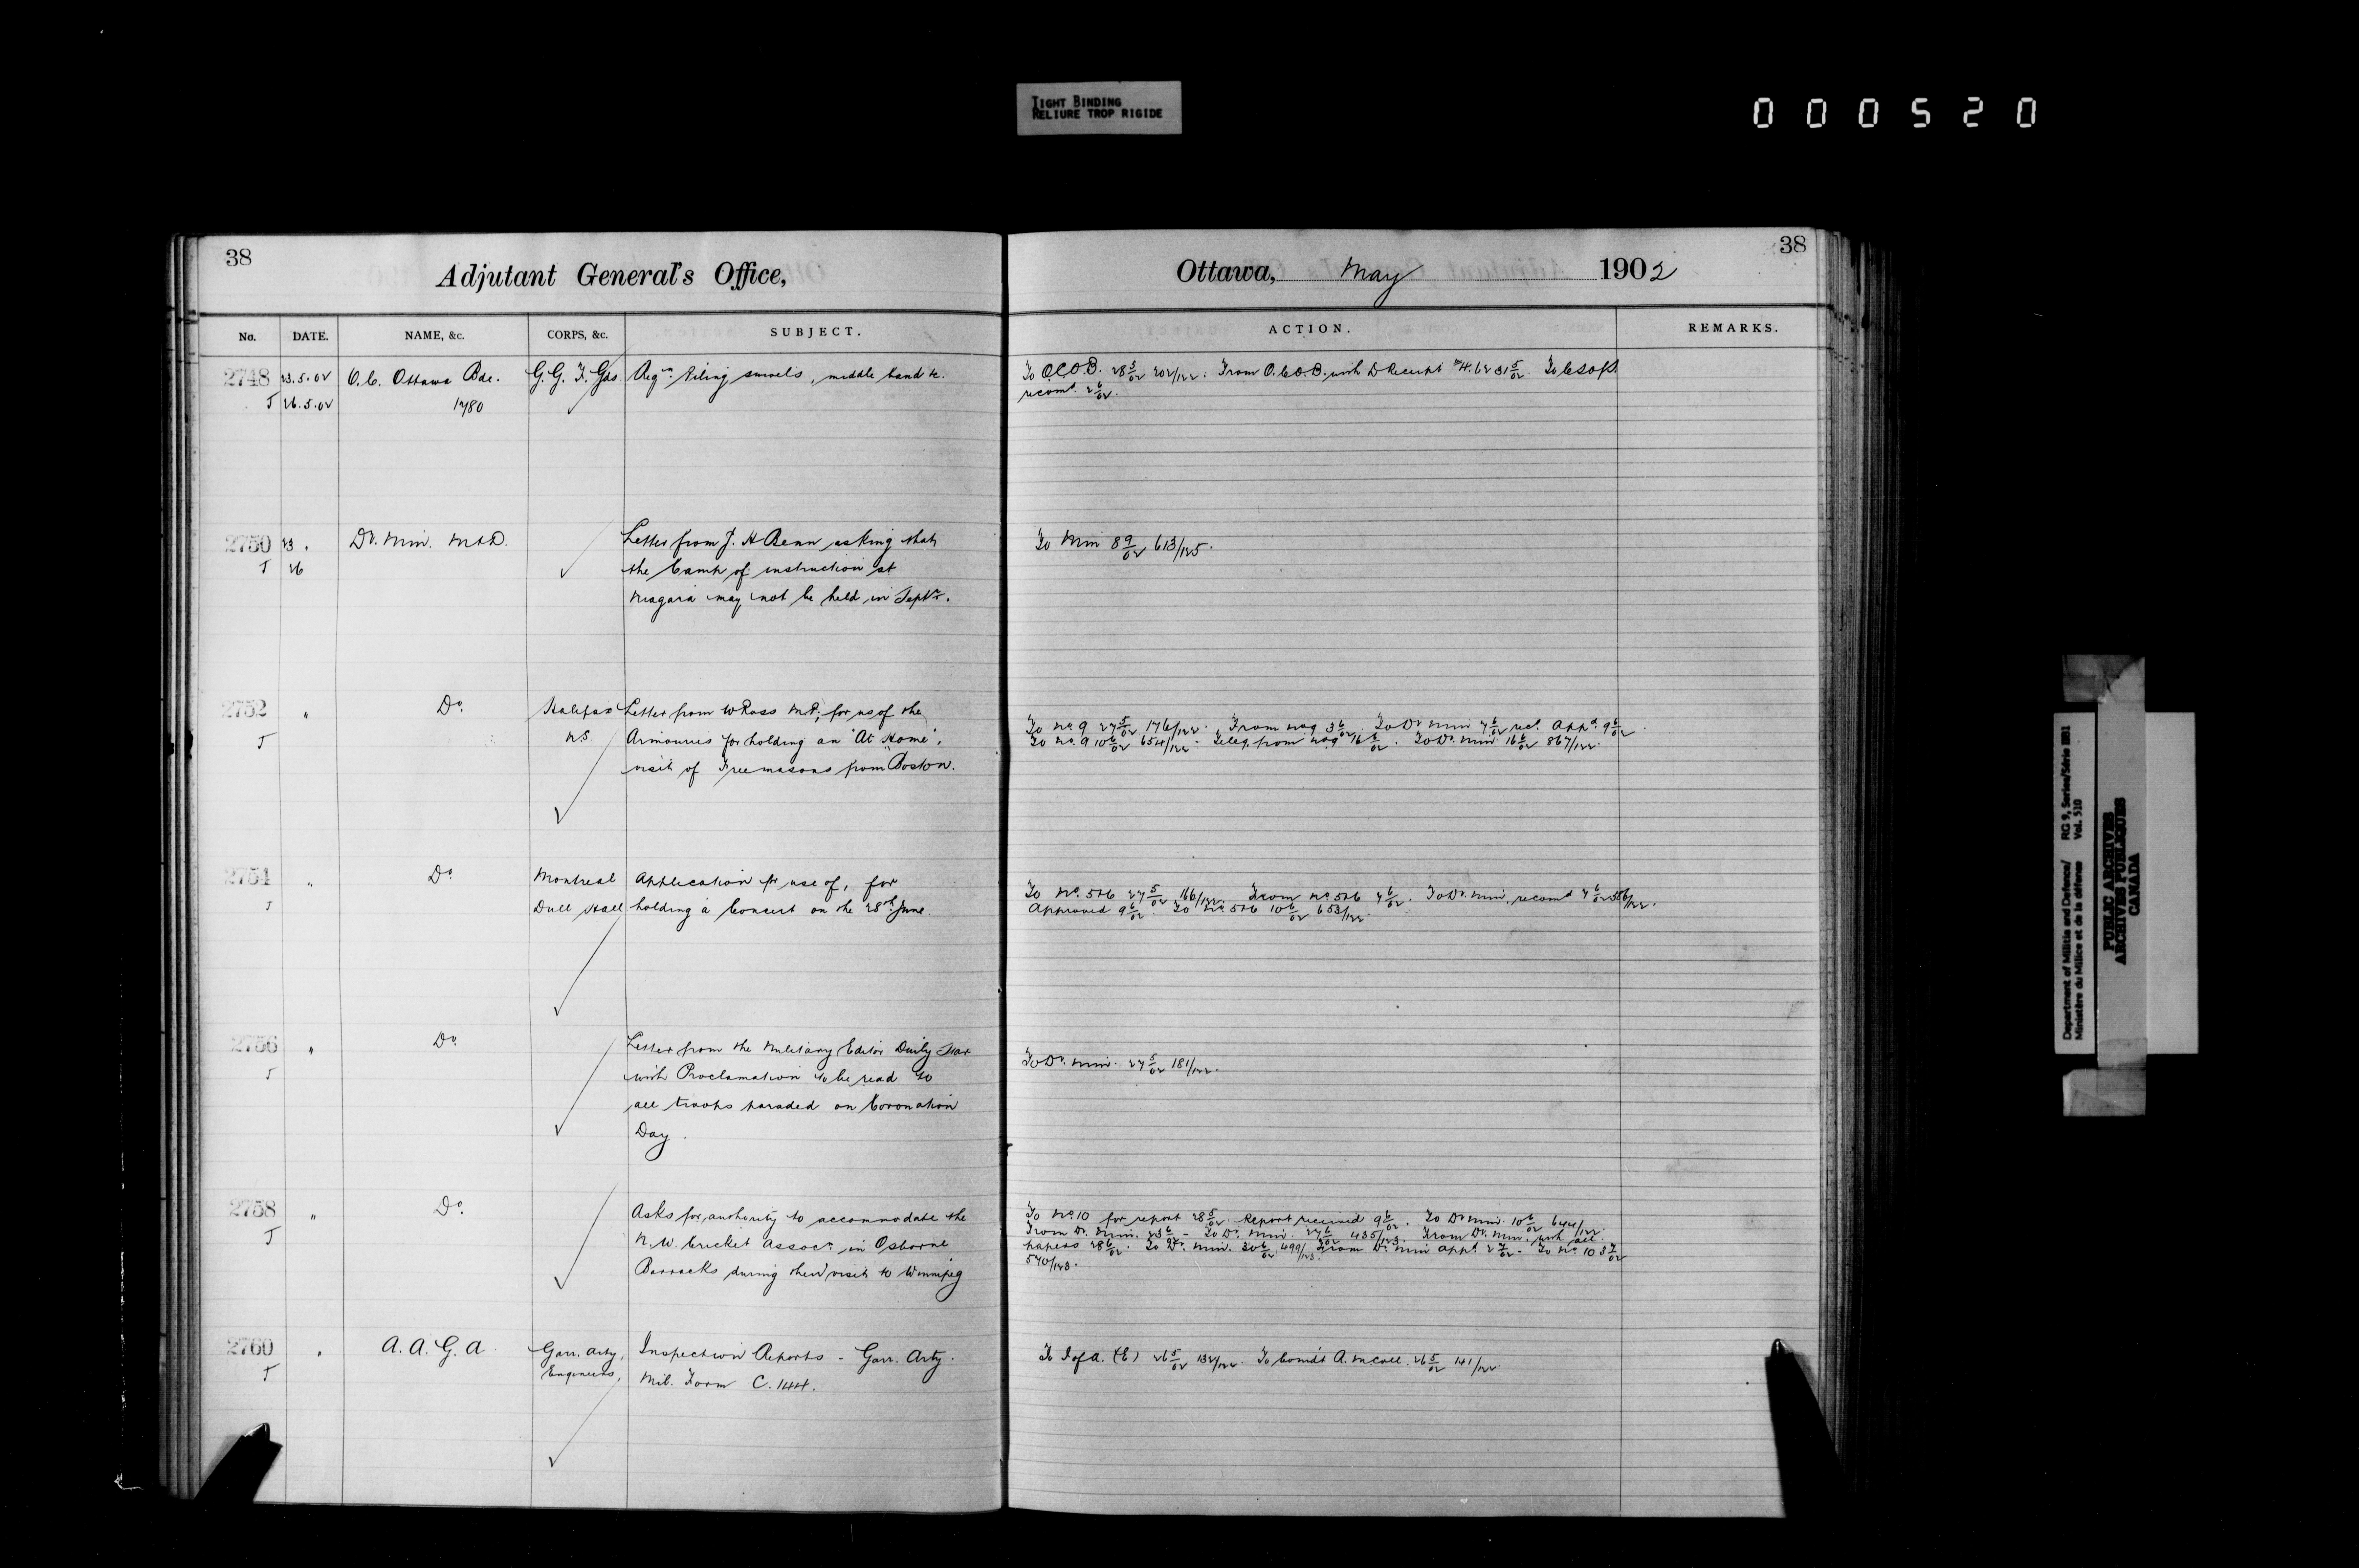 TIGHT BINDING
RELIURE TROP RIGIDE
000520
38
Adjutant General's Office,
No. DATE. NAME, &c. CORPS, &c. SUBJECT.
2748 23.5.02 O.C. Ottawa Bde. G.G.F. Gds Reqn. Piling swivels, middle band &c.
J 26.5.02 1780
2750 23. Dy. Min. M&D. Letter from J. H Benn asking that
J 26 the Camp of instruction at
Niagara may not be held in Septr.
2752 " Do. Halifax Letter from W Ross M.P; for use of the
J NS Armouries for holding an 'At Home',
visit of Freemasons from Boston.
2754 " Do Montreal Application for use of, for
J Drill Hall holding a Concert on the 28th June.
2756 " Do. Letter from the Military Editor Daily Star
J with Proclamation to be read to
all troops paraded on Coronation
Day.
2758 " Do. Asks for authority to accommodate the
J N.W. Cricket Assocn. in Osborne
Barracks during their visit to Winnipeg
2760 " A.A.G.A. Garr. Arty, Inspection Reports - Garr. Arty.
J Engineers, Mil. Form C.1444.
38
Ottawa, May 1902
ACTION. REMARKS.
To O.C.O.B. 28 5/02 202/122. From O.C.O.B. with D Receipt 31 5/02. To
recomd. 2 6/02.
To Min 8 9/02 613/125.
To No. 9 27 5/02 176/122. From No 9 3 6/02. To Dy Min 7 6/02 rec. Appd. 9 6/02.
To No. 9 10 6/02 654/122 - Teleg. from No 9 16 6/02. To Dy. Min. 16 6/02 867/122.
To No. 5&6 27 5/02 166/122. From No. 5&6 4 6/02. To Dy. Min. recomd 7 6/02 586/122.
Approved 9 6/02. To No. 5&6 10 6/02 653/122.
To Dy. Min. 27 5/02 181/122.
To No. 10 for report 28 5/02. Report received 9 6/02. To Dy Min. 10 6/02 644/122.
From Dy. Min. 23 6/02 - To Dy. Min. 27 6/02 435/123. From Dy. Min. with all
papers 28 6/02. To Dy. Min. 30 6/02 499/123. From Dy. Min appd. 2 7/02 - To No. 10 3 7/02
540/123.
To I of A. (E) 26 5/02 132/122. To Comdt A. McCall. 26 5/02 141/122
Department of Militia and Defence/ RG 9, Series/Série IIB1
Ministère du Milice et de la défense Vol. 510
PUBLIC ARCHIVES
ARCHIVES PUBLIQUES
CANADA